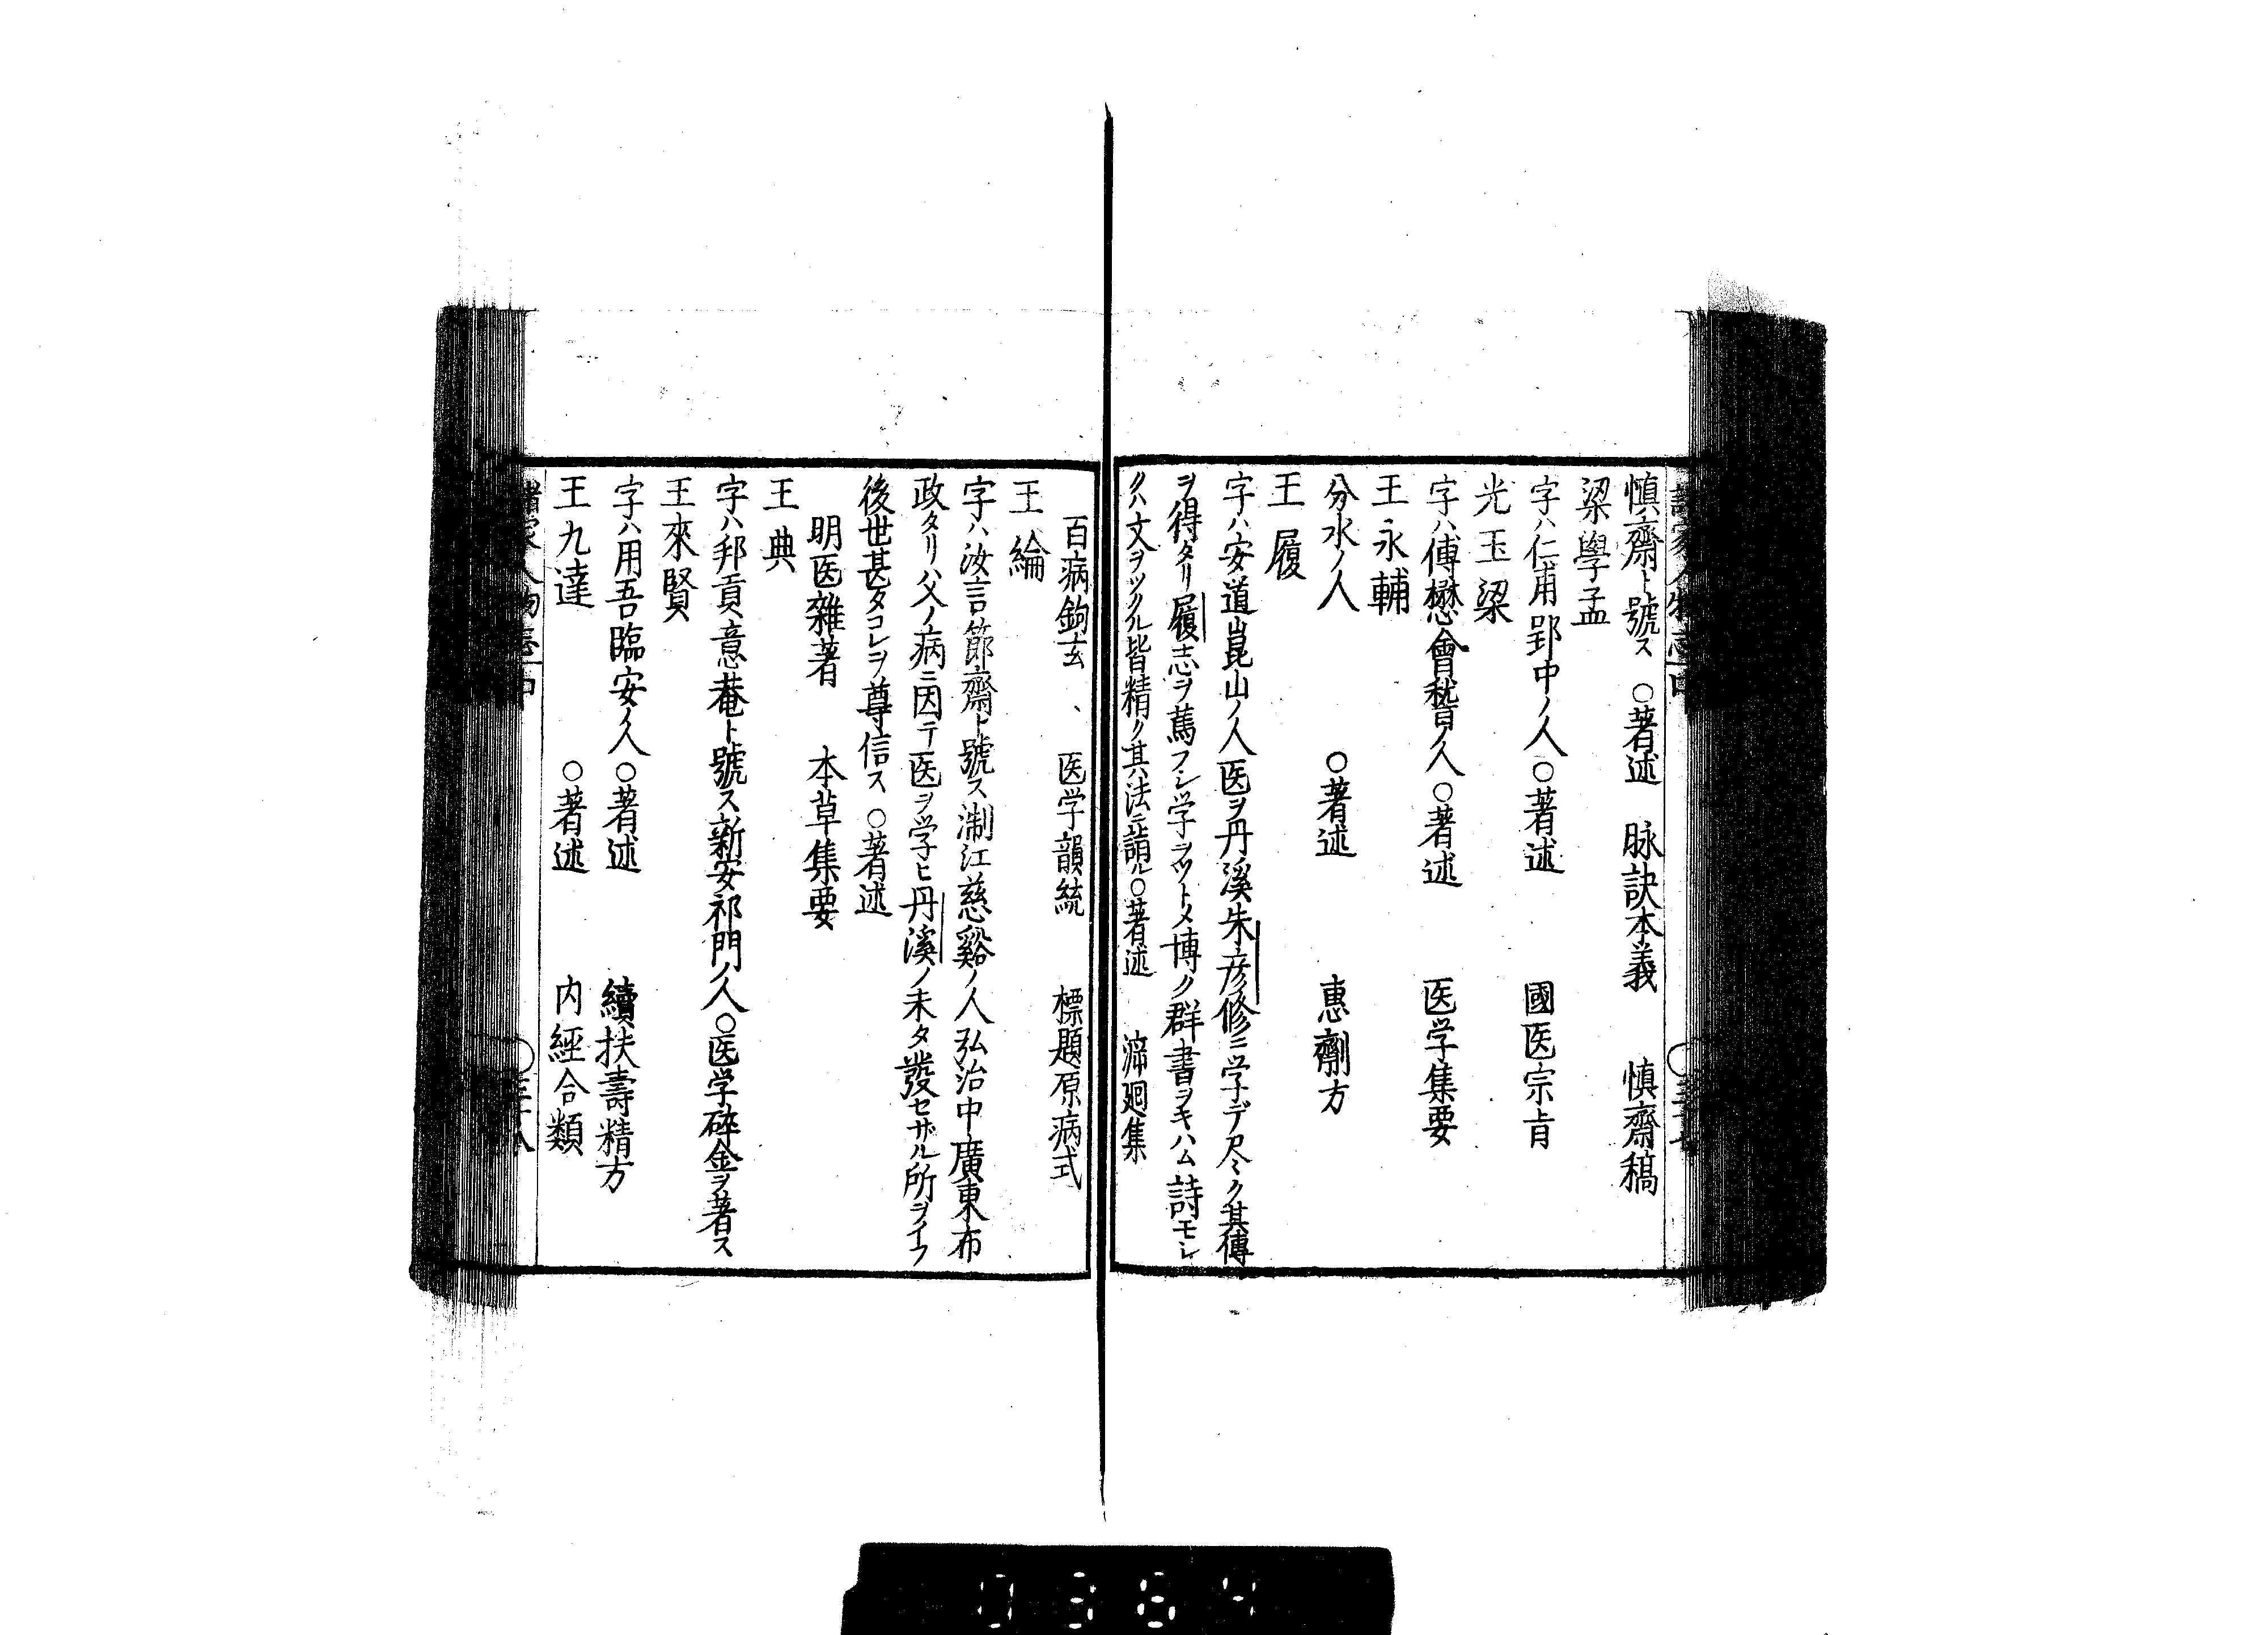 慎齋ト號ス ○著述 脉訣本義 慎齋稿
梁學孟
字ハ仁甫郢中ノ人○著述 國医宗㫖
光玉梁
字ハ傅懋會稽ノ人○著述 医学集要
王永輔
分水ノ人 ○著述 惠劑方
王履
字ハ安道崑山ノ人医ヲ丹溪朱彦修ニ学デ尽ク其傳
ヲ得タリ履志ヲ篤フシ学ヲツトメ博ク群書ヲキハム詩モシ
クハ文ヲツクル皆精ク其法ニ詣ル○著述 泝𢌞集
百病鉤玄、 医学韻統 標題原病式
王綸
字ハ汝言節齋ト號ス淛江慈谿ノ人弘治中廣東布
政タリハ父ノ病ニ因テ医ヲ学ヒ丹溪ノ未タ發セザル所ヲイフ
後世甚タコレヲ尊信ス ○著述
明医雜著 本草集要
王典
字ハ邦貢意菴ト號ス新安祁門ノ人○医学碎金ヲ著ス
王來賢
字ハ用吾臨安ノ人○著述 續扶壽精方
王九達 ○著述 内經合類
諸家人物志中